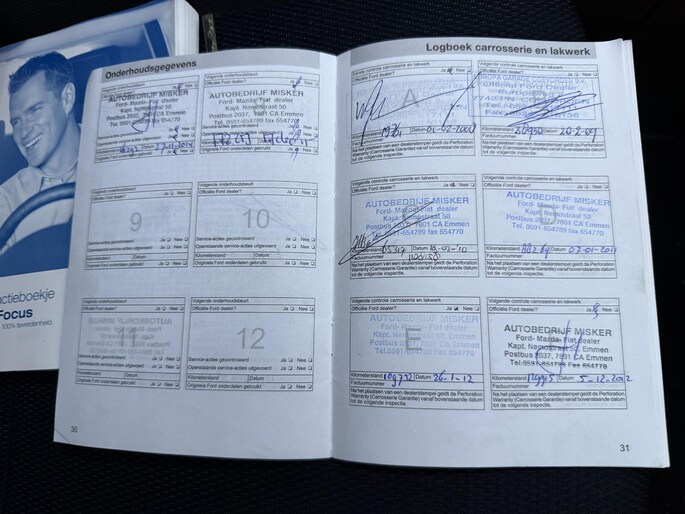 ctieboekje
Focus
100% tevredenheid.
Onderhoudsgegevens
Volgende onderhoudsbeurt
Officiële Ford dealer? Ja Nee
AUTOBEDRIJF MISKER
Ford- Mazda- Fiat dealer
Kapt. Nemostraat 50
Postbus 2037, 7801 CA Emmen
Service-acties gecontroleerd Ja Nee
Kilometerstand Datum
Originele Ford onderdelen gebruikt Ja Nee
Volgende onderhoudsbeurt
Officiële Ford dealer? Ja Nee
AUTOBEDRIJF MISKER
Ford- Mazda- Fiat dealer
Kapt. Nemostraat 50
Postbus 2037, 7801 CA Emmen
Tel. 0591-654789 fax 654770
Originele Ford onderdelen gebruikt Ja Nee
Volgende onderhoudsbeurt
Officiële Ford dealer? Ja Nee
9
Service-acties gecontroleerd Ja Nee
Openstaande service-acties uitgevoerd Ja Nee
Kilometerstand Datum
Originele Ford onderdelen gebruikt Ja Nee
Volgende onderhoudsbeurt
Officiële Ford dealer? Ja Nee
10
Service-acties gecontroleerd Ja Nee
Openstaande service-acties uitgevoerd Ja Nee
Kilometerstand Datum
Originele Ford onderdelen gebruikt Ja Nee
Volgende onderhoudsbeurt
Officiële Ford dealer? Ja Nee
11
Service-acties gecontroleerd Ja Nee
Openstaande service-acties uitgevoerd Ja Nee
Kilometerstand Datum
Originele Ford onderdelen gebruikt Ja Nee
Volgende onderhoudsbeurt
Officiële Ford dealer? Ja Nee
12
Service-acties gecontroleerd Ja Nee
Openstaande service-acties uitgevoerd Ja Nee
Kilometerstand Datum
Originele Ford onderdelen gebruikt Ja Nee
30
Logboek carrosserie en lakwerk
Volgende controle carrosserie en lakwerk
Officiële Ford dealer? Ja Nee
A
Kilometerstand Datum
Factuurnummer
Na het plaatsen van een dealerstempel geldt de Perforation
Warranty (Carrosserie Garantie) vanaf bovenstaande datum
tot de volgende inspectie.
Official Ford Dealer
Kilometerstand Datum 20-2-09
Factuurnummer
Na het plaatsen van een dealerstempel geldt de Perforation
Warranty (Carrosserie Garantie) vanaf bovenstaande datum
tot de volgende inspectie.
Volgende controle carrosserie en lakwerk
Officiële Ford dealer? Ja Nee
AUTOBEDRIJF MISKER
Ford- Mazda- Fiat dealer
Kapt. Nemostraat 50
Postbus 2037, 7801 CA Emmen
Tel. 0591-654789 fax 654770
Datum 18-02-10
Factuurnummer
Na het plaatsen van een dealerstempel geldt de Perforation
Warranty (Carrosserie Garantie) vanaf bovenstaande datum
tot de volgende inspectie.
Volgende controle carrosserie en lakwerk
Officiële Ford dealer? Ja Nee
AUTOBEDRIJF MISKER
Ford- Mazda- Fiat dealer
Kapt. Nemostraat 50
Postbus 2037, 7801 CA Emmen
Tel. 0591-654789 fax 654770
D
Kilometerstand Datum 07-01-2011
Factuurnummer
Na het plaatsen van een dealerstempel geldt de Perforation
Warranty (Carrosserie Garantie) vanaf bovenstaande datum
tot de volgende inspectie.
Volgende controle carrosserie en lakwerk
Officiële Ford dealer? Ja Nee
AUTOBEDRIJF MISKER
Ford- Mazda- Fiat dealer
Kapt. Nemostraat 50
Postbus 2037, 7801 CA Emmen
Tel. 0591-654789 fax 654770
E
Kilometerstand 109732 Datum 26-1-12
Factuurnummer
Na het plaatsen van een dealerstempel geldt de Perforation
Warranty (Carrosserie Garantie) vanaf bovenstaande datum
tot de volgende inspectie.
Volgende controle carrosserie en lakwerk
Officiële Ford dealer? Ja Nee
AUTOBEDRIJF MISKER
Ford- Mazda- Fiat dealer
Kapt. Nemostraat 50
Postbus 2037, 7801 CA Emmen
Tel. 0591-654789 fax 654770
Kilometerstand Datum 5-12-2012
Factuurnummer
Na het plaatsen van een dealerstempel geldt de Perforation
Warranty (Carrosserie Garantie) vanaf bovenstaande datum
tot de volgende inspectie.
31